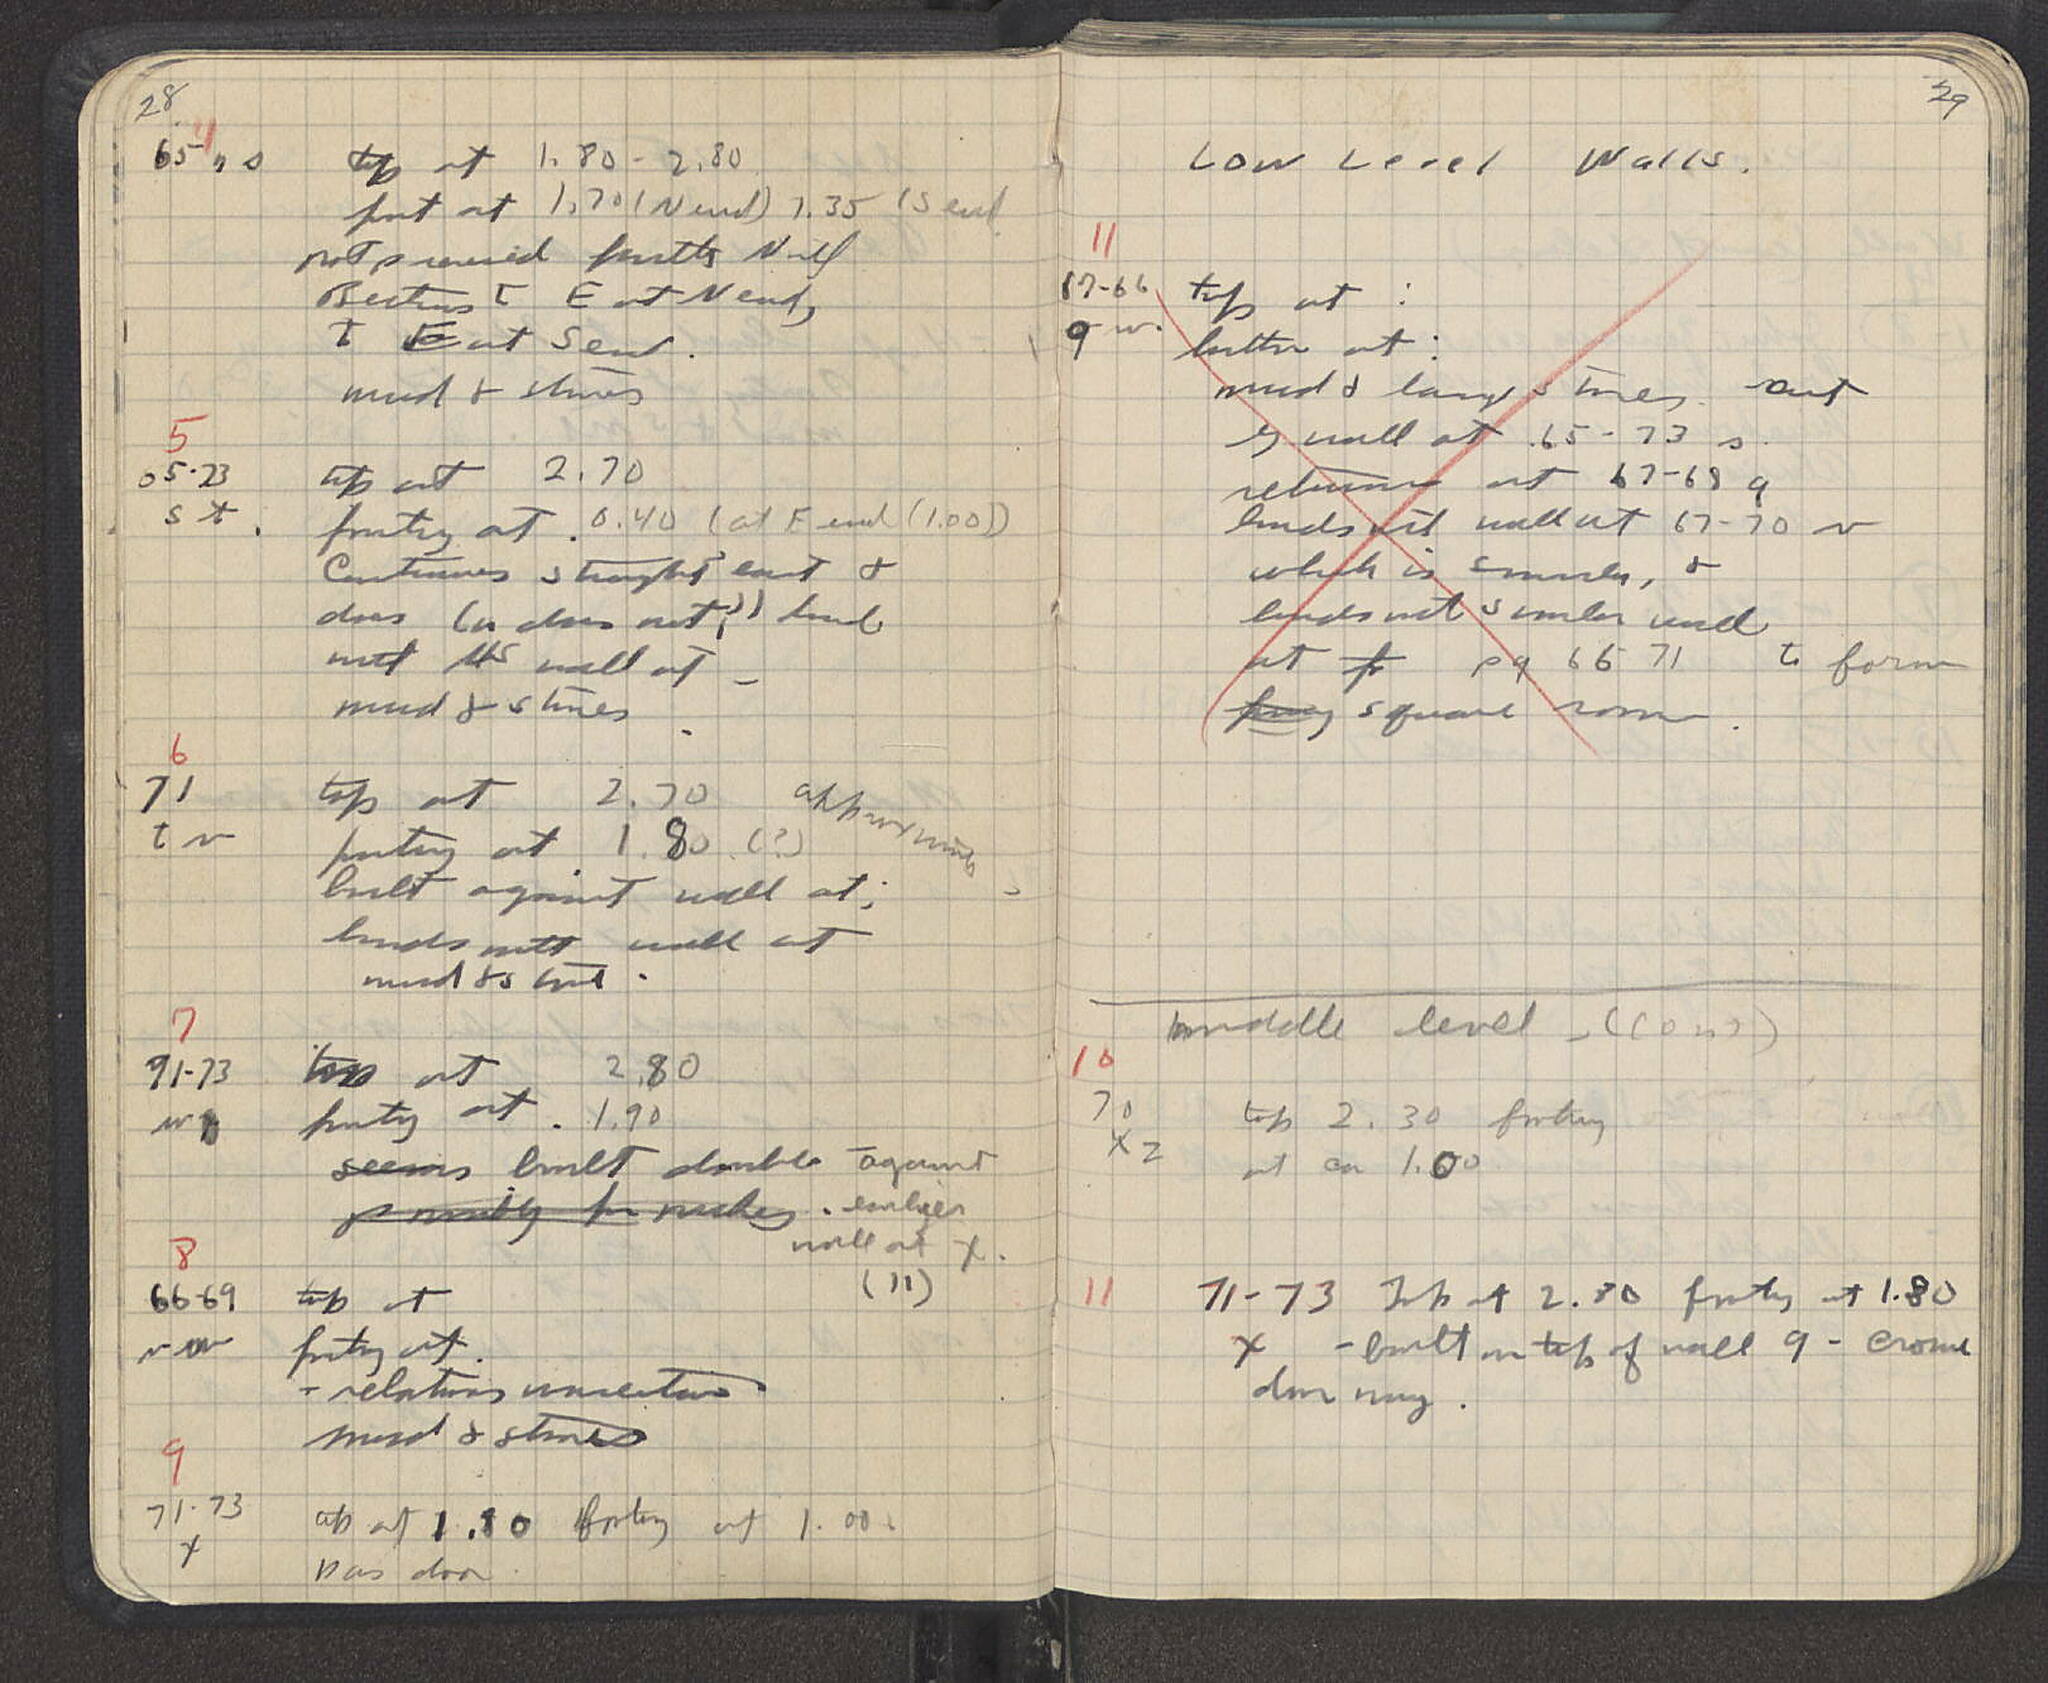 28
4
65 n o top at 1.80 - 2.80
foot at 1.70 (N end) 1.35 (S end
not preserved further N
E at N end,
E at S end.
mud & stones
5
65-73 top at 2.70
s t. footing at .0.40 (at E end (1.00))
Continues straight east &
does (or does not ?)) bond
with NS wall at -
mud & stones
6
71 top at 2.70 approximate
t v footing at 1.80 (?)
built against wall at;
bonds with wall at
mud & stone.
7
71-73 top at 2.80
w footing at. 1.90
seems built double against
possibly for niches. earlier
wall at x.
(11)
8
66-69 top at
v w footing at.
- relations uncertain
mud & stones
9
71-73 top at 1.80 footing at 1.00.
x Has door
29
Low Level Walls.
11
67-66 top at :
q w. bottom at :
mud & large stones. out
of wall at 65-73 s.
returns at 67-68 q
bonds with wall at 67-70 v
which is similar, &
bonds with similar wall
at pq 66 71 to form
square room.
Middle level - (Cont)
10
70 top 2.30 footing
x z at ca 1.00
11 71-73 Top at 2.80 footing at 1.80
x - built on top of wall 9 - across
door way.